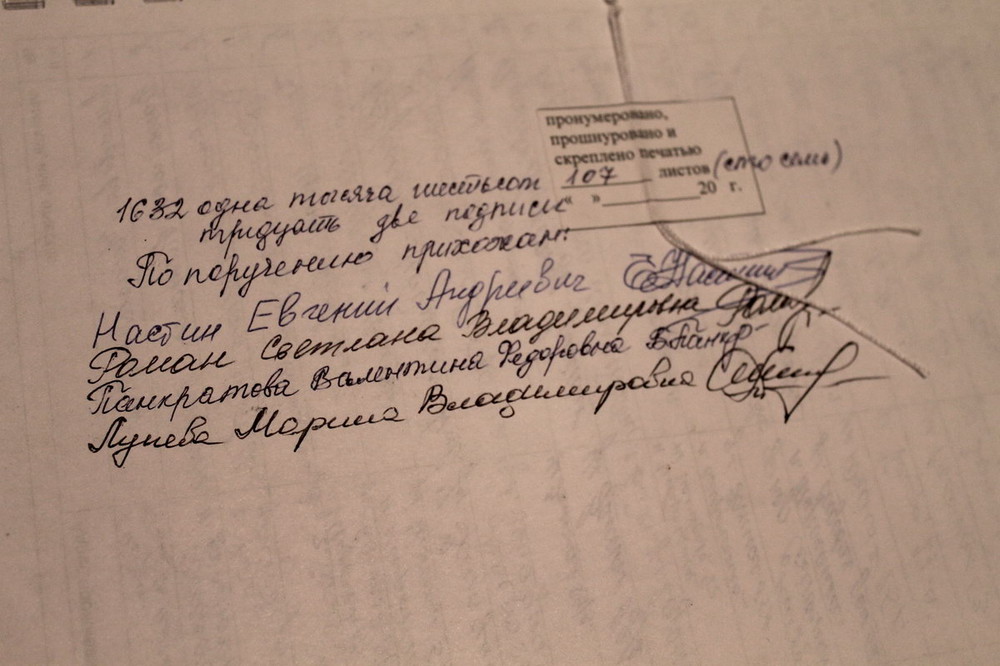 пронумеровано,
прошнуровано и
скреплено печатью
107 листов (сто семь)
« » 20 г.
1632 одна тысяча шестьсот
тридцать две подписи
По поручению прихожан:
Настин Евгений Андреевич
Роман Светлана Владимировна
Панкратова Валентина Федоровна
Лунева Марина Владимировна